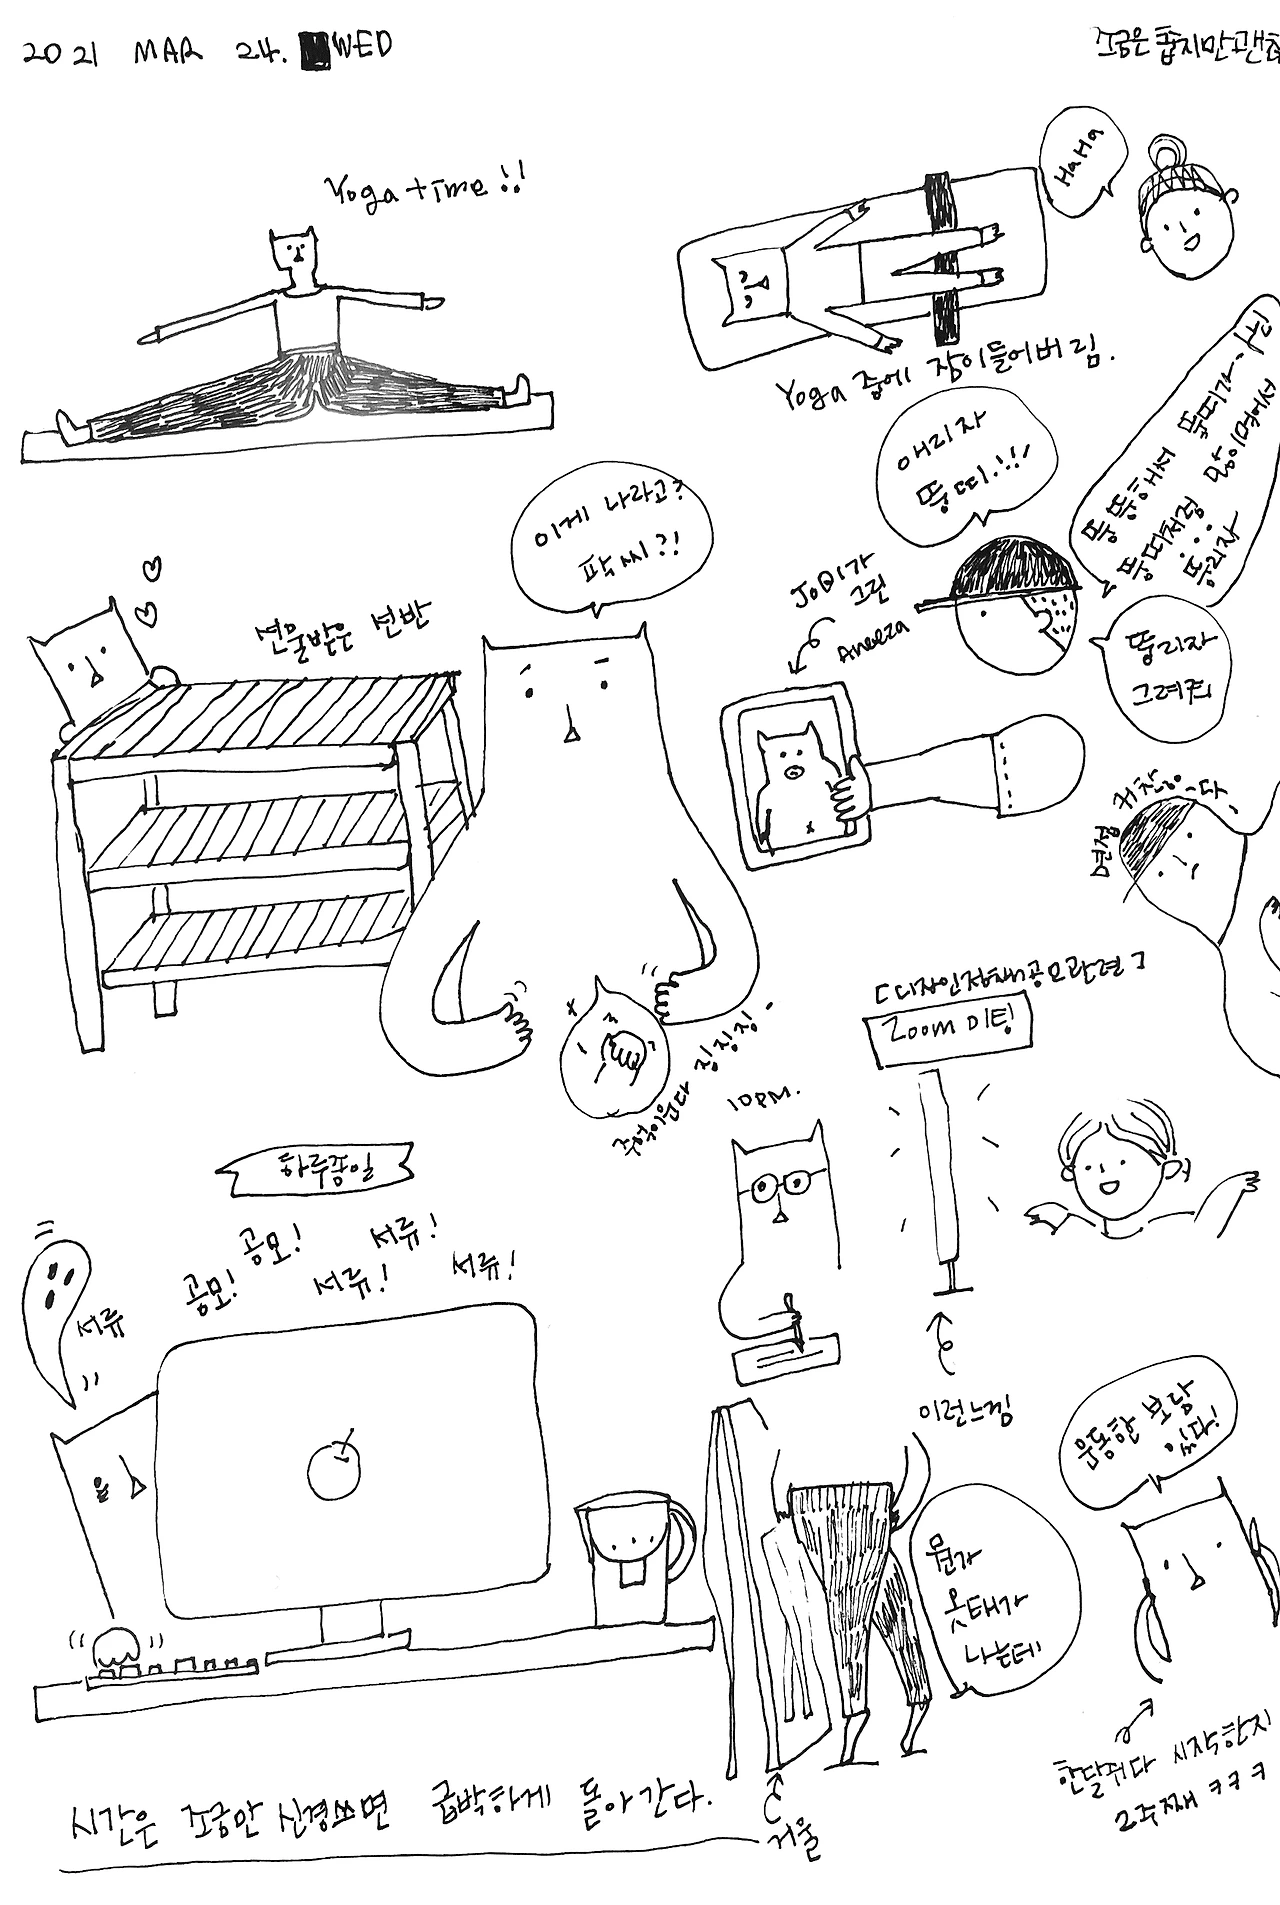 2021 MAR 24. WED
조금은 춥지만 괜찮
Yoga time!!
HaHa
Yoga 중에 잠이들어버림.
애리자
뚱띠!!!
뚱뚱해서 뚱띠가
뚱띠처럼 많이먹어서
뚱리자
뚱리자
그려줘
JoDI가
그린
Aneeza
이게 나라고?
팍씨?!
선물받은 선반
귀찮으다
면접
[디자인정책공모관련]
Zoom 미팅
추억이읍다 징징징
10PM.
하루종일
공모! 공모! 서류! 서류! 서류!
서류
이런느낌
운동한 보람
있다!
뭔가
옷태가
나는데
한달쥐다 시작한지
2주째 ㅋㅋㅋ
거울
시간은 조금만 신경쓰면 급박하게 돌아간다.